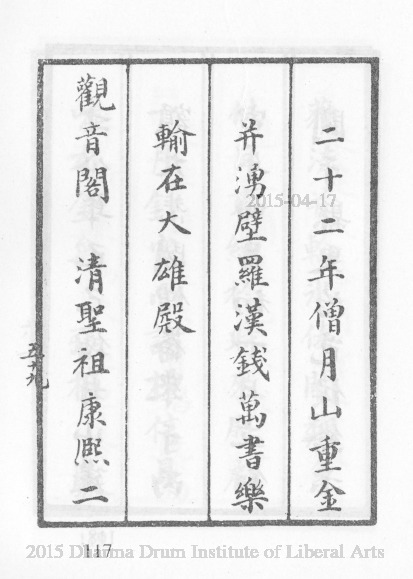 二十二年僧月山重金
并湧壁羅漢錢萬書樂
輸在大雄殿
觀音閣　清聖祖康熙二
五十九
117
2015-04-17
2015 Dharma Drum Institute of Liberal Arts